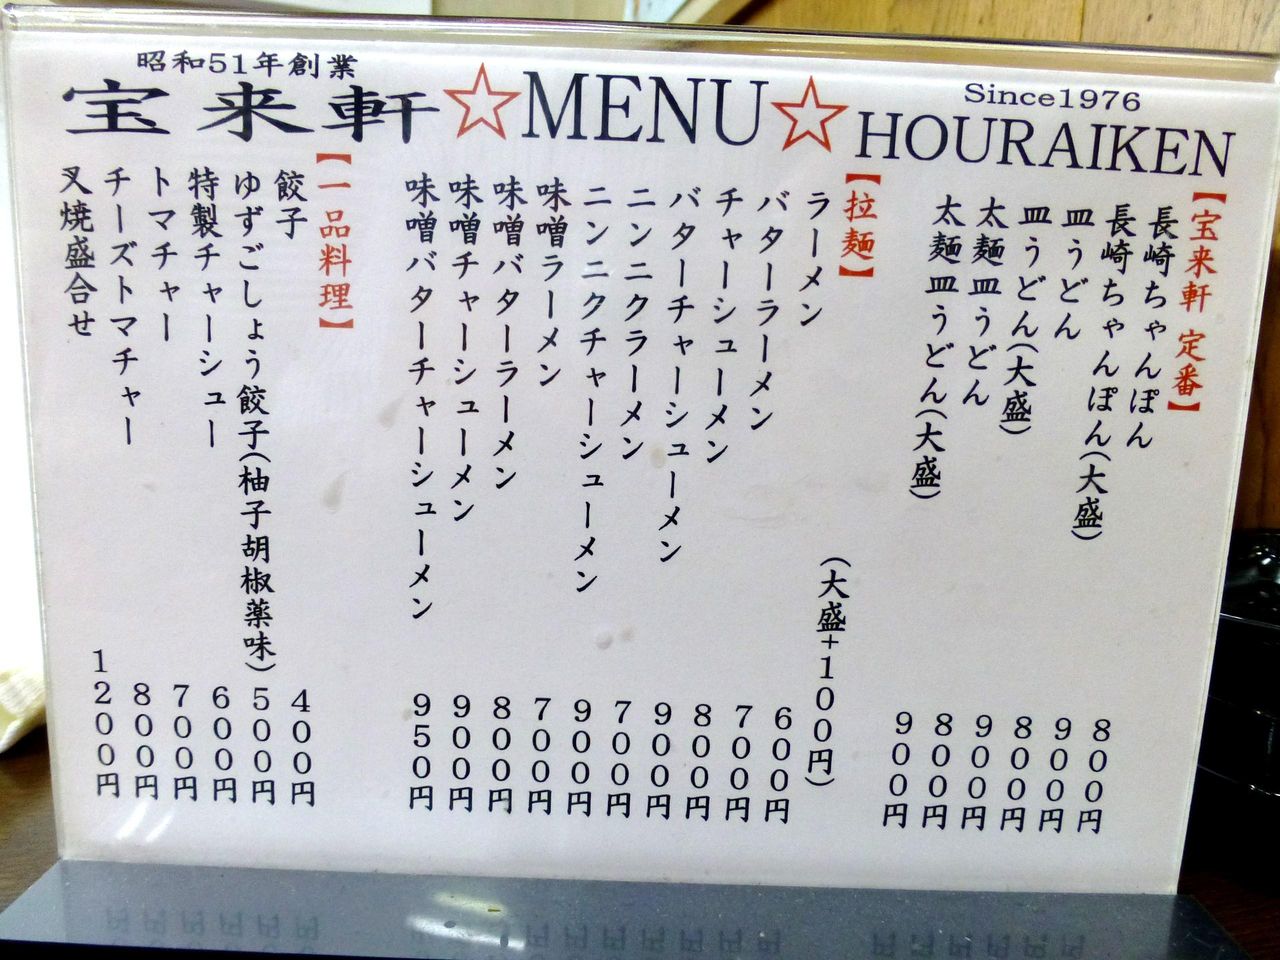 昭和51年創業
宝来軒☆MENU☆HOURAIKEN
Since1976
【宝来軒 定番】
長崎ちゃんぽん 800円
長崎ちゃんぽん(大盛) 900円
皿うどん 800円
皿うどん(大盛) 900円
太麺皿うどん 800円
太麺皿うどん(大盛) 900円
【拉麺】 (大盛+100円)
ラーメン 600円
バターラーメン 700円
チャーシューメン 800円
バターチャーシューメン 900円
ニンニクラーメン 700円
ニンニクチャーシューメン 900円
味噌ラーメン 700円
味噌バターラーメン 800円
味噌チャーシューメン 900円
味噌バターチャーシューメン 950円
【一品料理】
餃子 400円
ゆずごしょう餃子(柚子胡椒薬味) 500円
特製チャーシュー 600円
トマチャー 700円
チーズトマチャー 800円
叉焼盛合せ 1200円